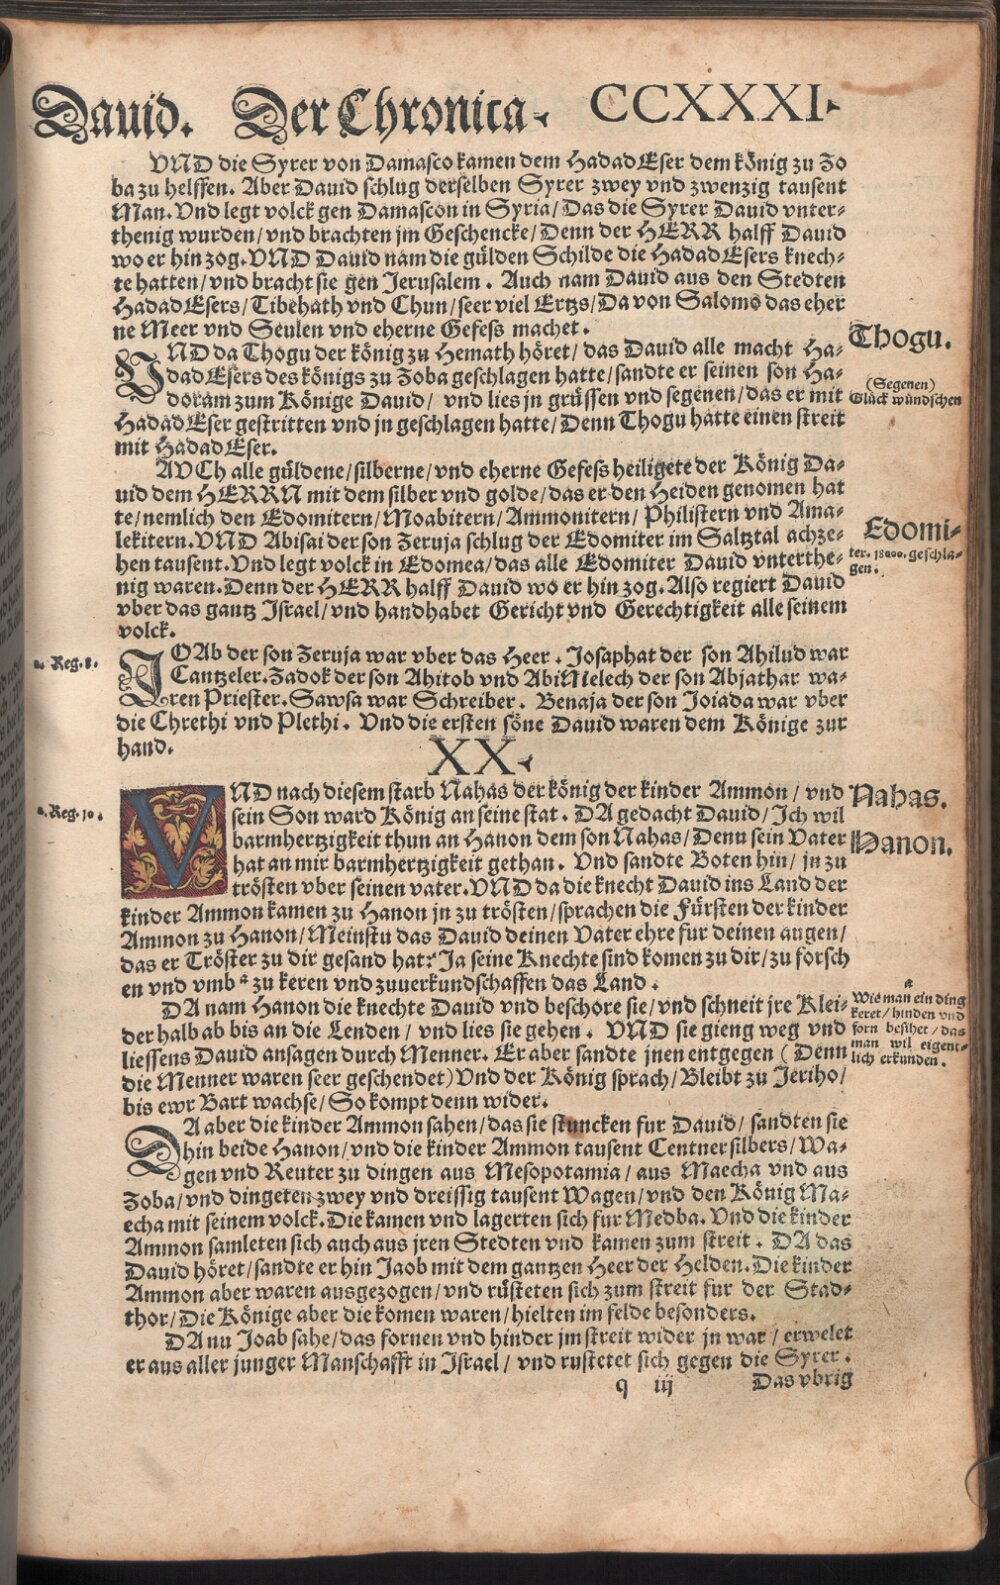 Dauid. Der Chronica. CCXXXI.
VND die Syrer von Damasco kamen dem HadadEser dem könig zu Zo
ba zu helffen. Aber Dauid schlug derselben Syrer zwey vnd zwenzig tausent
Man. Vnd legt volck gen Damascon in Syria/ Das die Syrer Dauid vnter-
thenig wurden/ vnd brachten jm Geschencke/ Denn der HERR halff Dauid
wo er hin zog. VND Dauid nam die gülden Schilde die HadadEsers knech-
te hatten/ vnd bracht sie gen Jerusalem. Auch nam Dauid aus den Stedten
HadadEsers/ Tibehath vnd Chun/ seer viel Ertzs/ Da von Salomo das eher
ne Meer vnd Seulen vnd eherne Gefess machet.
Thogu.
VND da Thogu der könig zu Hemath höret/ das Dauid alle macht Ha-
dadEsers des königs zu Zoba geschlagen hatte/ sandte er seinen son Ha-
doram zum Könige Dauid/ vnd lies jn grüssen vnd segenen/ das er mit
HadadEser gestritten vnd jn geschlagen hatte/ Denn Thogu hatte einen streit
mit HadadEser.
(Segenen)
Glück wündschen
AVCh alle güldene/ silberne/ vnd eherne Gefess heiligete der König Da-
uid dem HERRN mit dem silber vnd golde/ das er den Heiden genomen hat
te/ nemlich den Edomitern/ Moabitern/ Ammonitern/ Philistern vnd Ama-
lekitern. VND Abisai der son Zeruja schlug der Edomiter im Saltztal achze-
hen tausent. Vnd legt volck in Edomea/ das alle Edomiter Dauid vnterthe-
nig waren. Denn der HERR halff Dauid wo er hin zog. Also regiert Dauid
vber das gantz Israel/ vnd handhabet Gericht vnd Gerechtigkeit alle seinem
volck.
Edomi-
ter. 18000. geschla-
gen.
2. Reg. 8.
JOAb der son Zeruja war vber das Heer. Josaphat der son Ahilud war
Cantzeler. Zadok der son Ahitob vnd AbiMelech der son Abjathar wa-
ren Priester. Sawsa war Schreiber. Benaja der son Joiada war vber
die Chrethi vnd Plethi. Vnd die ersten söne Dauid waren dem Könige zur
hand.
XX.
2. Reg. 10.
VND nach diesem starb Nahas der könig der kinder Ammon/ vnd
sein Son ward König an seine stat. DA gedacht Dauid/ Ich wil
barmhertzigkeit thun an Hanon dem son Nahas/ Denn sein Vater
hat an mir barmhertzigkeit gethan. Vnd sandte Boten hin/ jn zu
trösten vber seinen vater. VND da die knecht Dauid ins Land der
kinder Ammon kamen zu Hanon jn zu trösten/ sprachen die Fürsten der kinder
Ammon zu Hanon/ Meinstu das Dauid deinen Vater ehre fur deinen augen/
das er Tröster zu dir gesand hat? Ja seine Knechte sind komen zu dir/ zu forsch
en vnd vmb a zu keren vnd zuuerkundschaffen das Land.
Nahas.
Hanon.
DA nam Hanon die knechte Dauid vnd beschore sie/ vnd schneit jre Klei-
der halb ab bis an die Lenden/ vnd lies sie gehen. VND sie gieng weg vnd
liessens Dauid ansagen durch Menner. Er aber sandte jnen entgegen (Denn
die Menner waren seer geschendet) Vnd der König sprach/ Bleibt zu Jeriho/
bis ewr Bart wachse/ So kompt denn wider.
a
Wie man ein ding
keret/ hinden vnd
forn besihet/ das
man wil eigent-
lich erkunden.
DA aber die kinder Ammon sahen/ das sie stuncken fur Dauid/ sandten sie
hin beide Hanon/ vnd die kinder Ammon tausent Centner silbers/ Wa-
gen vnd Reuter zu dingen aus Mesopotamia/ aus Maecha vnd aus
Zoba/ vnd dingeten zwey vnd dreissig tausent Wagen/ vnd den König Ma-
echa mit seinem volck. Die kamen vnd lagerten sich fur Medba. Vnd die kinder
Ammon samleten sich auch aus jren Stedten vnd kamen zum streit. DA das
Dauid höret/ sandte er hin Jaob mit dem gantzen Heer der Helden. Die kinder
Ammon aber waren ausgezogen/ vnd rüsteten sich zum streit fur der Stad-
thor/ Die Könige aber die komen waren/ hielten im felde besonders.
DA nu Joab sahe/ das fornen vnd hinder jm streit wider jn war/ erwelet
er aus aller junger Manschafft in Israel/ vnd rustetet sich gegen die Syrer.
q iij Das vbrig